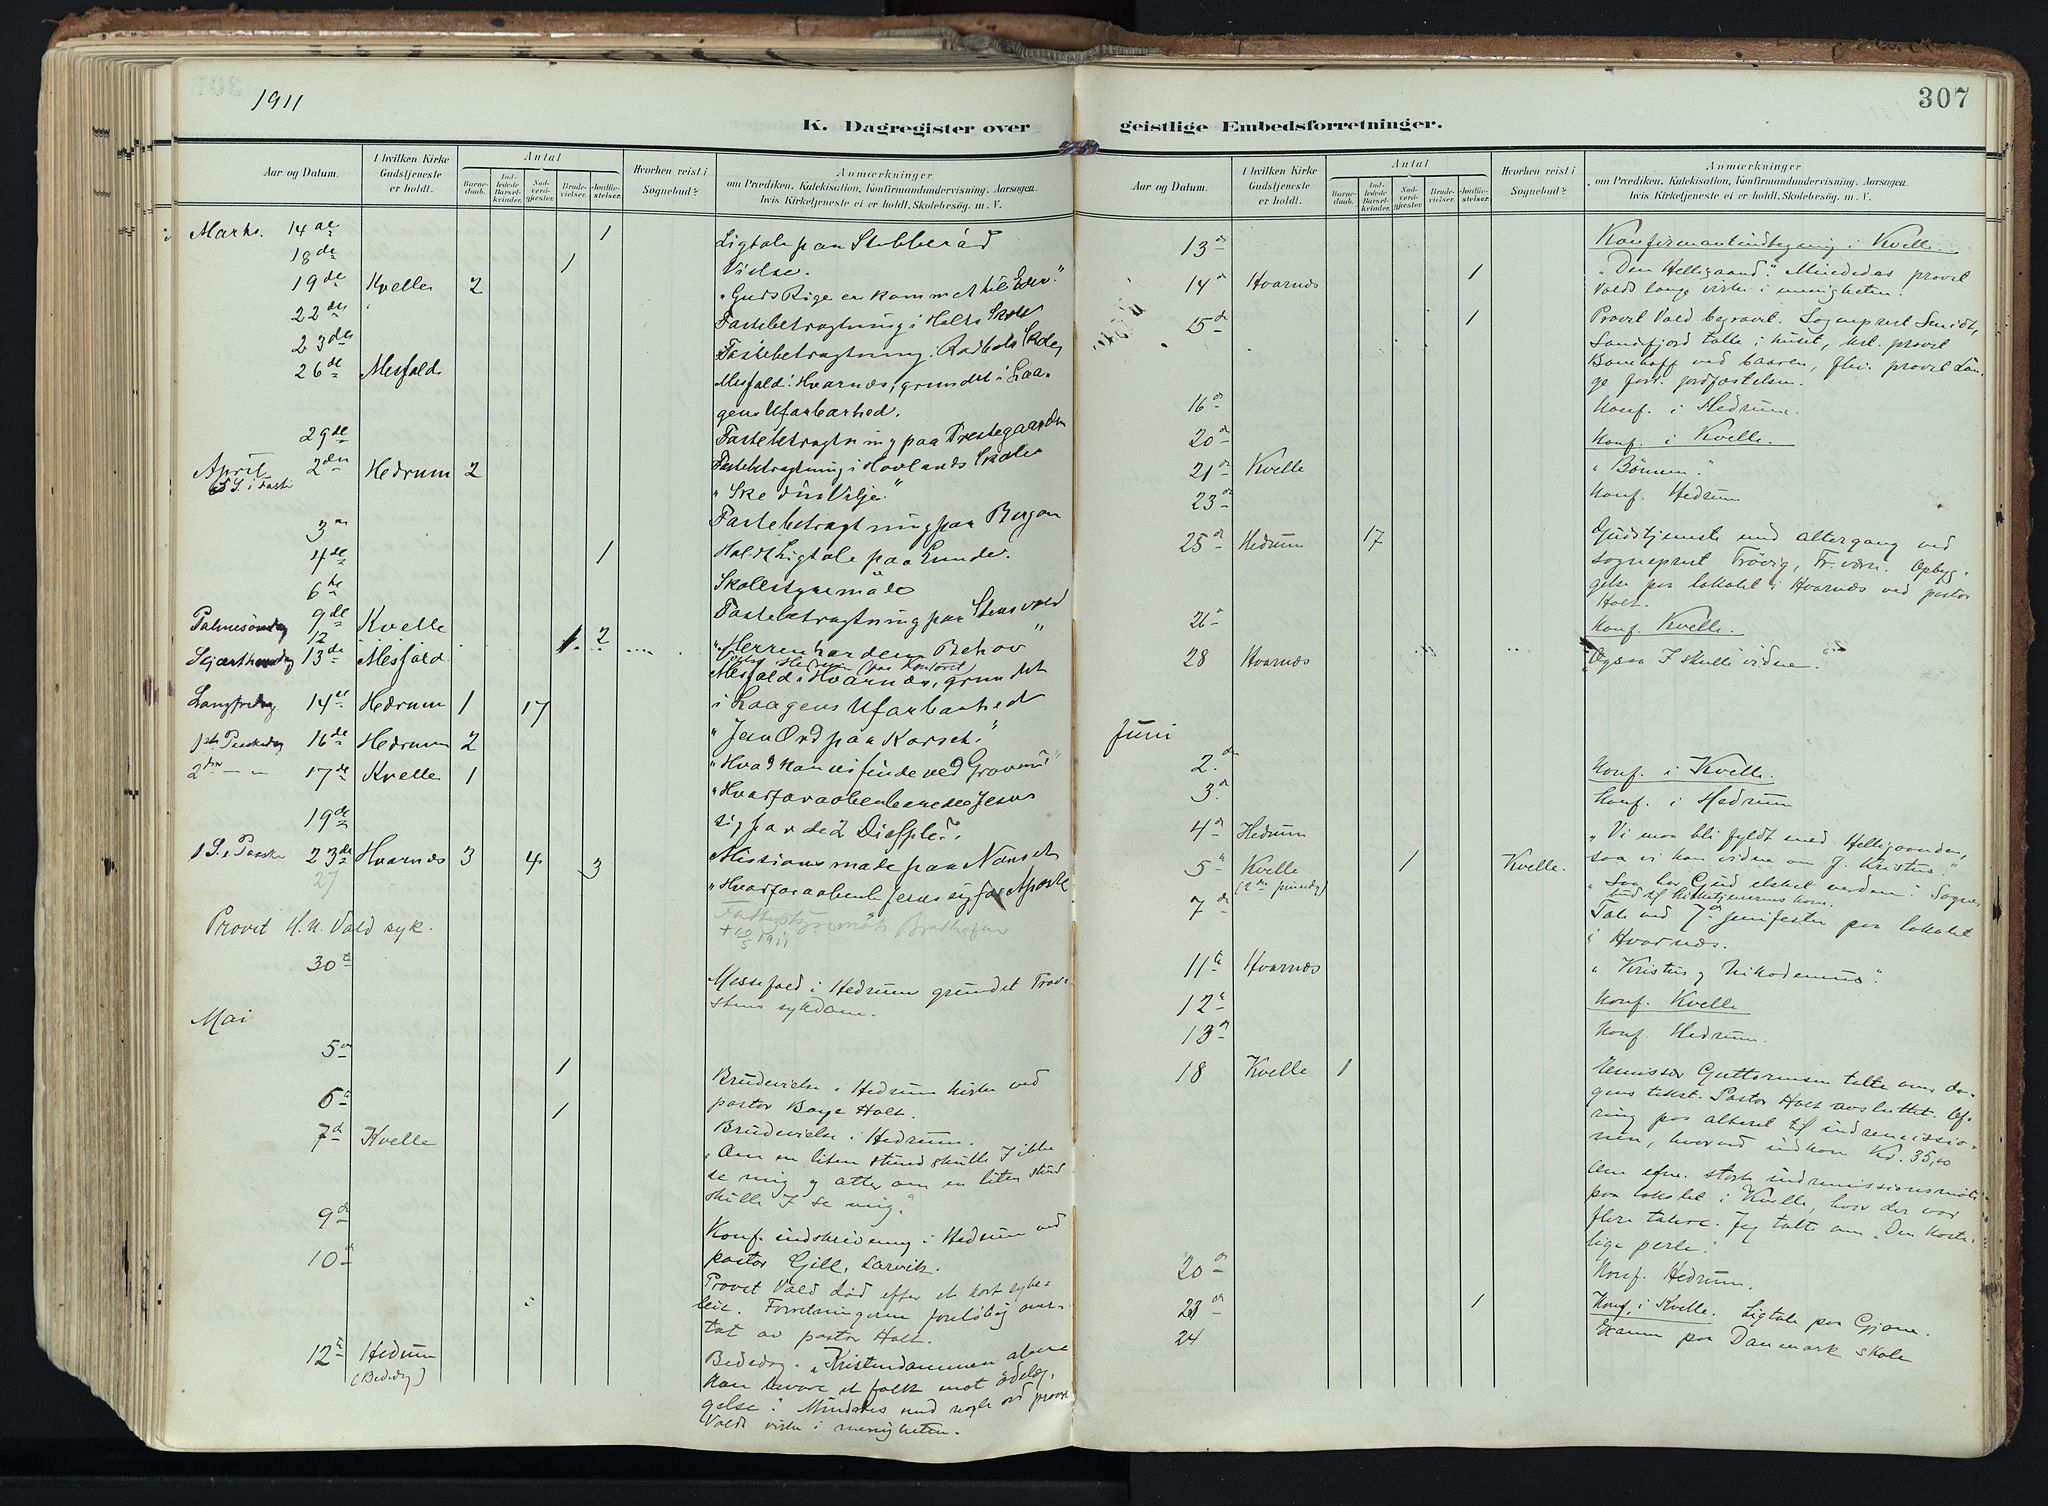 1911
307
K. Dagregister over geistlige Embedsforretninger.
Aar og Datum. I hvilken Kirke Gudstjeneste er holdt. Antal Barnedaab. Indledede Barselkvinder. Nadverdgjæster. Brudevielser. Jordfæstelser. Hvorhen reist i Sognebud? Anmærkninger om Prædiken, Katekisation, Konfirmandundervisning, Aarsagen, hvis Kirketjeneste ei er holdt, Skolebesøg, m. V.
Marts. 14de 1 Ligtale paa Stubberød
18de 1 Vielse.
19de Kvelle 2 "Guds Rige er kommet til Eder."
22de Fastebetragtning i Holts Skole
23de Fastebetragtning i Rødbøls Skole
26de Mesfald Mesfald i Hvarnæs, grundet i Laa-
gens Ufarbarhed.
29de Fastebetragtning paa Prestegaarden
April 2den Hedrum 2 Fastebetragtning i Hovlands Skole
5 S. i Faste "Ske din Vilje."
3die Fastebetragtning paa Bergan
4de 1 Holdt Ligtale paa Lunde.
6te Skolestyremøde
Palmesøndag 9de Kvelle Fastebetragtning paa Stensvold
12 1 2 "Herren har dem Behov"
Skjærthorsdag 13de Mesfald Vielse i Hedrum paa Kontoret
Mesfald i Hvarnæs, grundet
Langfredag 14de Hedrum 1 17 i Laagens Ufarbarhed
1ste Paaskedag 16de Hedrum 2 "Jesu Ord paa Korset."
2den — 17de Kvelle 1 "Hvad kan vi finde ved Graven?"
19de "Hvorfor aabenbarede Jesus
sig for de 2 Disiple?"
1 S. e. Paaske 23de Hvarnæs 3 4 3 Missionsmøde paa Nanset
27 "Hvorfor aabenb. Jesus sig for Apostl
Provst H. N. Vald syk. + 10/5 1911
30te Messefald i Hedrum grundet Prov-
stens sykdom.
Mai
5te 1 Brudevielse i Hedrum kirke ved
pastor Boye Holt.
6te 1 Brudevielse i Hedrum.
7de Kvelle "Om en liten stund skulle I ikke
se mig og atter om en liten stund
skulle I se mig."
9de Konf. indskrivning i Hedrum ved
pastor Gill, Larvik.
10de Provst Vald død efter et kort syke-
leie. Forretningerne foreløbig over-
tat av pastor Holt.
12te Hedrum Bededag. "Kristendommen alene
(Bededag) kan bevare et folk mot ødelæg-
gelse". Mindedes med nogle ord provst
Valds virke i menigheten.
Aar og Datum. I hvilken Kirke Gudstjeneste er holdt. Antal Barnedaab. Indledede Barselkvinder. Nadverdgjæster. Brudevielser. Jordfæstelser. Hvorhen reist i Sognebud? Anmærkninger om Prædiken, Katekisation, Konfirmandundervisning, Aarsagen, hvis Kirketjeneste ei er holdt, Skolebesøg, m. V.
13de Konfirmantindtegning i Kvelle.
14de Hvarnæs 1 "Den Helligaand." Mindedes provst
Valds lange virke i menigheten.
15de 1 Provst Vald begravet. Sogneprest Smidt,
Sandefjord talte i huset, kst. provst
Bomhoff ved baaren, fhv. provst Lan-
ge forr. jordfæstelsen.
16de Konf. i Hedrum.
20de Konf. i Kvelle.
21de Kvelle "Bønnen."
23de Konf. Hedrum
25de Hedrum 17 Gudstjeneste med altergang ved
sogneprest Trövig, Fr.værn. Opbyg-
gelse paa lokalet i Hvarnæs ved pastor
Holt.
26de Konf. Kvelle.
28 Hvarnæs "Ogsaa I skulle vidne."
Juni
2den Konf. i Kvelle.
3de Konf. i Hedrum
4de Hedrum "Vi maa bli fyldt med Helligaanden,
5te Kvelle 1 Kvelle. saa vi kan vidne om J. Kristus."
(2den pinsedag) "Saa har Gud elsket verden". Sogne-
bud til kirketjenerens kone.
7de Tale ved 7de junifesten paa lokalet
i Hvarnæs.
11te Hvarnæs "Kristus og Nikodemus".
12te Konf. Kvelle
13de Konf. Hedrum.
18 Kvelle 1 Emissær Guttormsen talte over da-
gens tekst. Pastor Holt avsluttet. Of-
ring paa alteret til indremissio-
nen, hvorved indkom Kr. 35,00
Om efm. stort indremissionsmøte
paa lokalet i Kvelle, hvor der var
flere talere. Jeg talte om "Den koste-
lige perle."
20de Konf. Hedrum.
23de 1 Konf. i Kvelle. Ligtale paa Gjone.
24 Examen paa Danmark skole